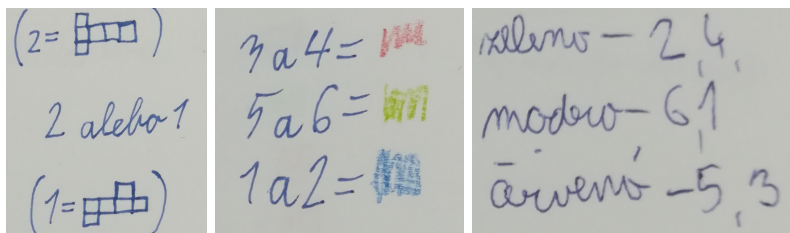 (2= )
2 alebo 1
(1= )
3a4=
5a6=
1a2=
zeleno - 2,4,
modro - 6,1
červenó - 5,3